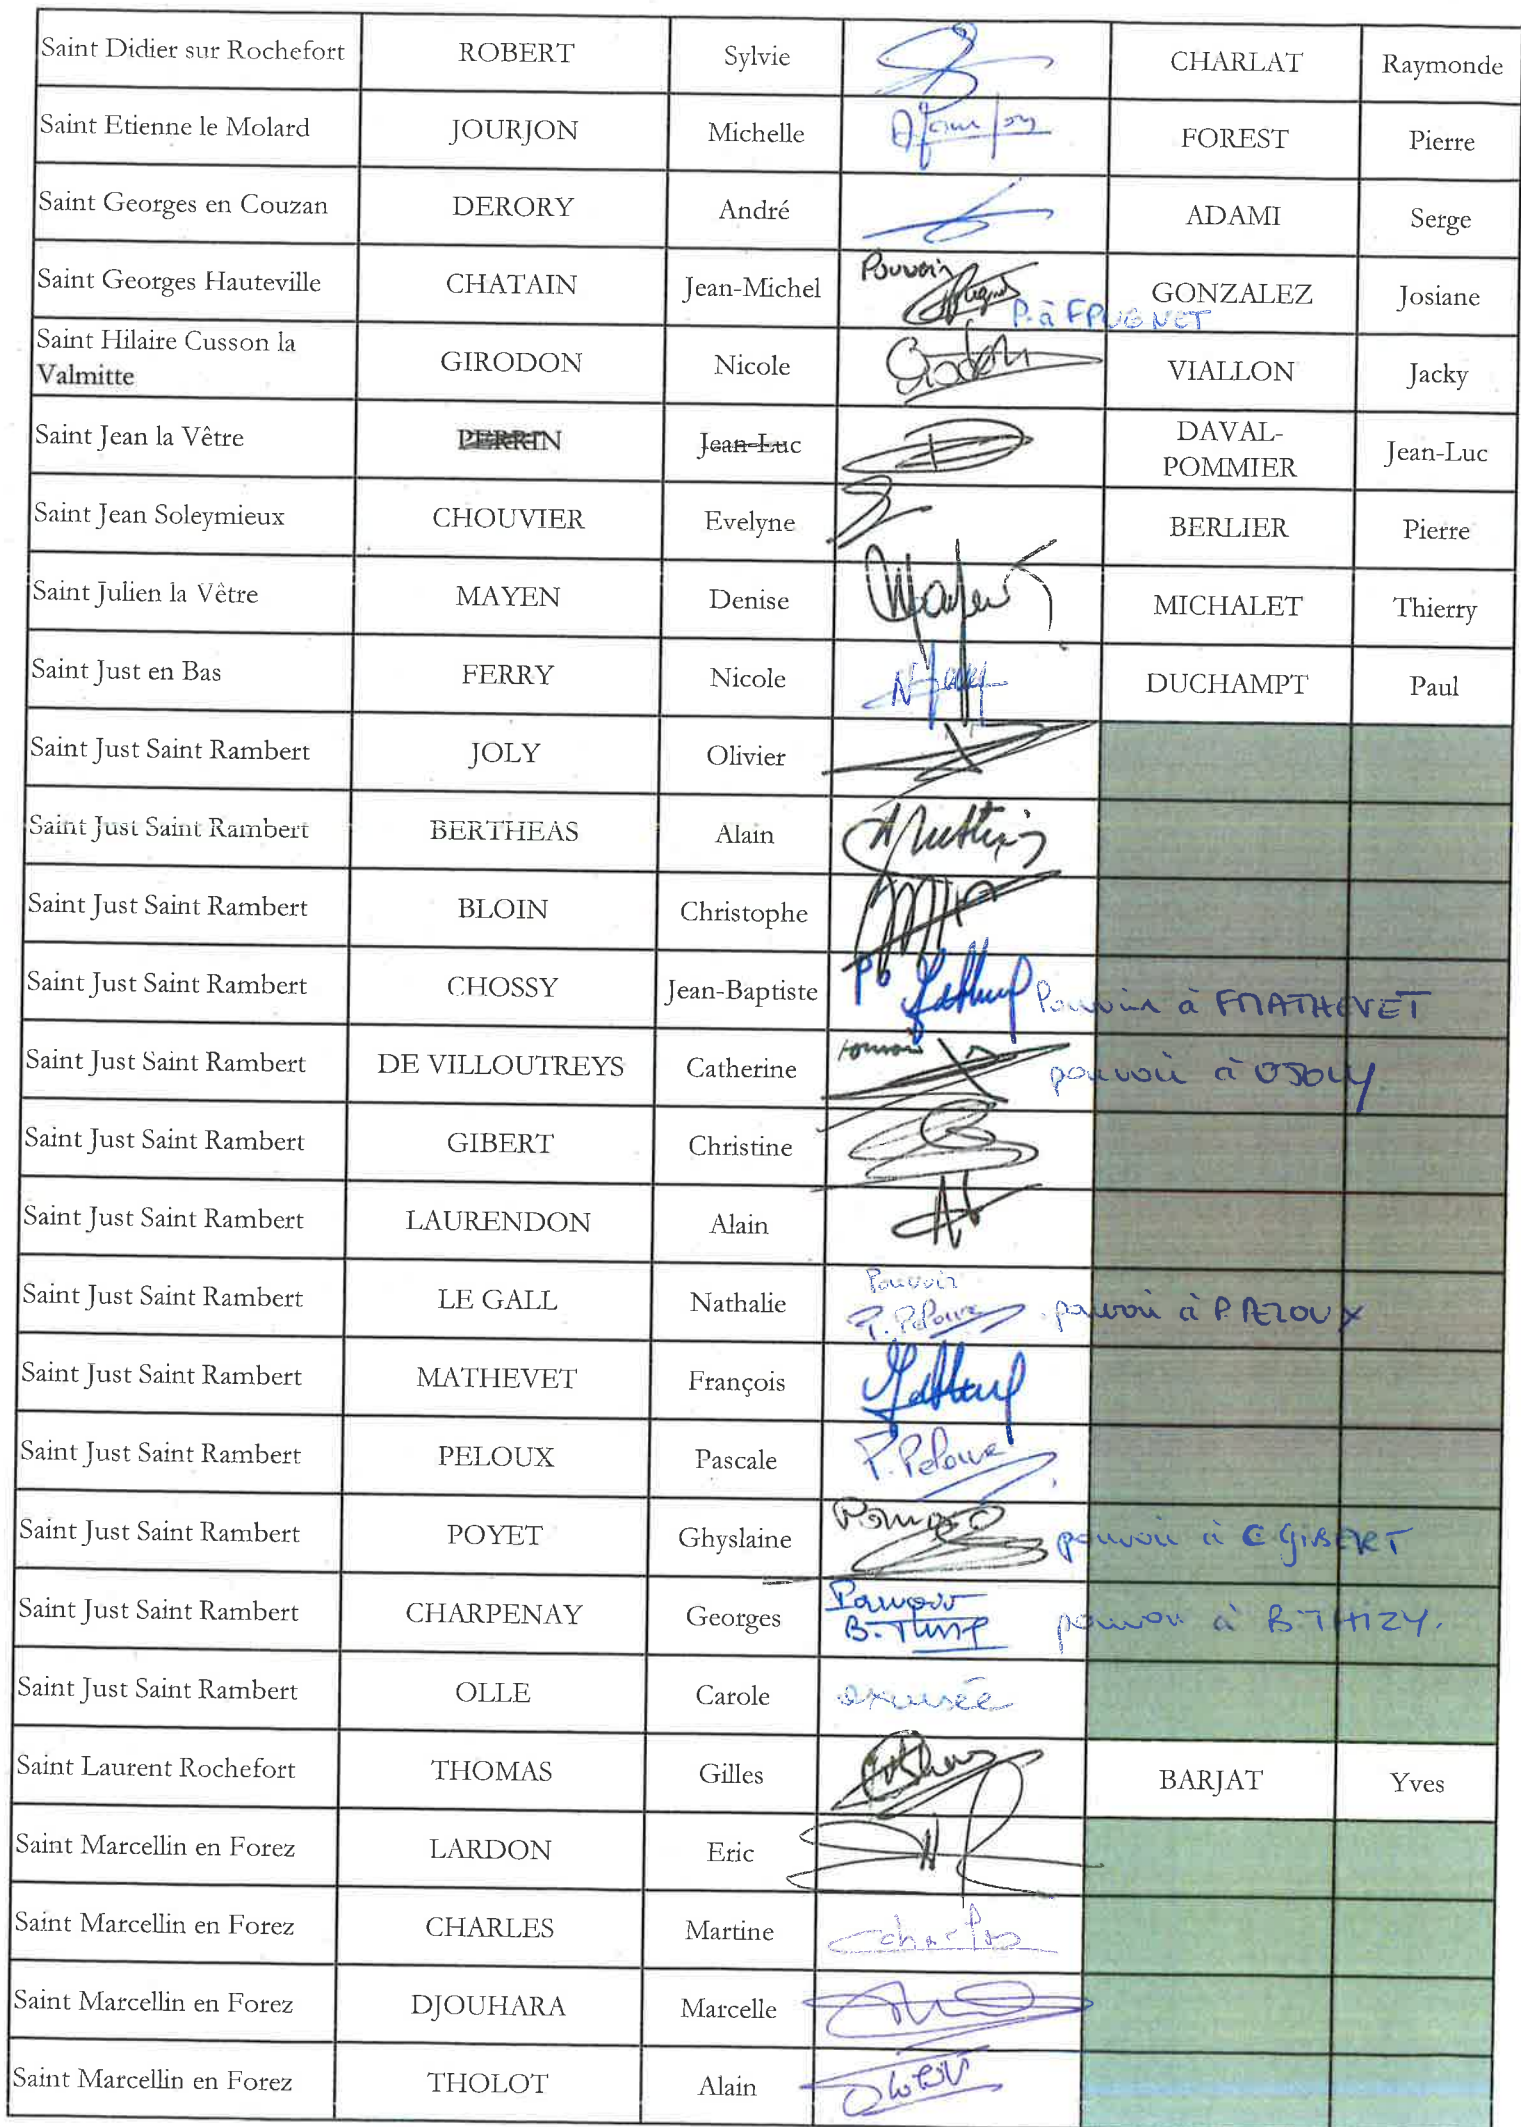 Saint Didier sur Rochefort ROBERT Sylvie CHARLAT Raymonde
Saint Etienne le Molard JOURJON Michelle FOREST Pierre
Saint Georges en Couzan DERORY André ADAMI Serge
Saint Georges Hauteville CHATAIN Jean-Michel Pouvoir P. à F PUGNET GONZALEZ Josiane
Saint Hilaire Cusson la
Valmitte GIRODON Nicole VIALLON Jacky
Saint Jean la Vêtre PERRIN Jean-Luc DAVAL-
POMMIER Jean-Luc
Saint Jean Soleymieux CHOUVIER Evelyne BERLIER Pierre
Saint Julien la Vêtre MAYEN Denise MICHALET Thierry
Saint Just en Bas FERRY Nicole DUCHAMPT Paul
Saint Just Saint Rambert JOLY Olivier
Saint Just Saint Rambert BERTHEAS Alain
Saint Just Saint Rambert BLOIN Christophe
Saint Just Saint Rambert CHOSSY Jean-Baptiste Po Pouvoir à F MATHEVET
Saint Just Saint Rambert DE VILLOUTREYS Catherine pouvoir pouvoir à O JOLY
Saint Just Saint Rambert GIBERT Christine
Saint Just Saint Rambert LAURENDON Alain
Saint Just Saint Rambert LE GALL Nathalie Pouvoir P. Peloux pouvoir à P. PELOUX
Saint Just Saint Rambert MATHEVET François
Saint Just Saint Rambert PELOUX Pascale P. Peloux
Saint Just Saint Rambert POYET Ghyslaine Pouvoir pouvoir à C GIBERT
Saint Just Saint Rambert CHARPENAY Georges Pouvoir B. Thizy pouvoir à B. THIZY.
Saint Just Saint Rambert OLLE Carole excusée
Saint Laurent Rochefort THOMAS Gilles BARJAT Yves
Saint Marcellin en Forez LARDON Eric
Saint Marcellin en Forez CHARLES Martine Charles
Saint Marcellin en Forez DJOUHARA Marcelle
Saint Marcellin en Forez THOLOT Alain